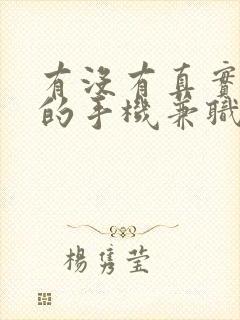 有沒有真實
的手機兼職
楊隽莹